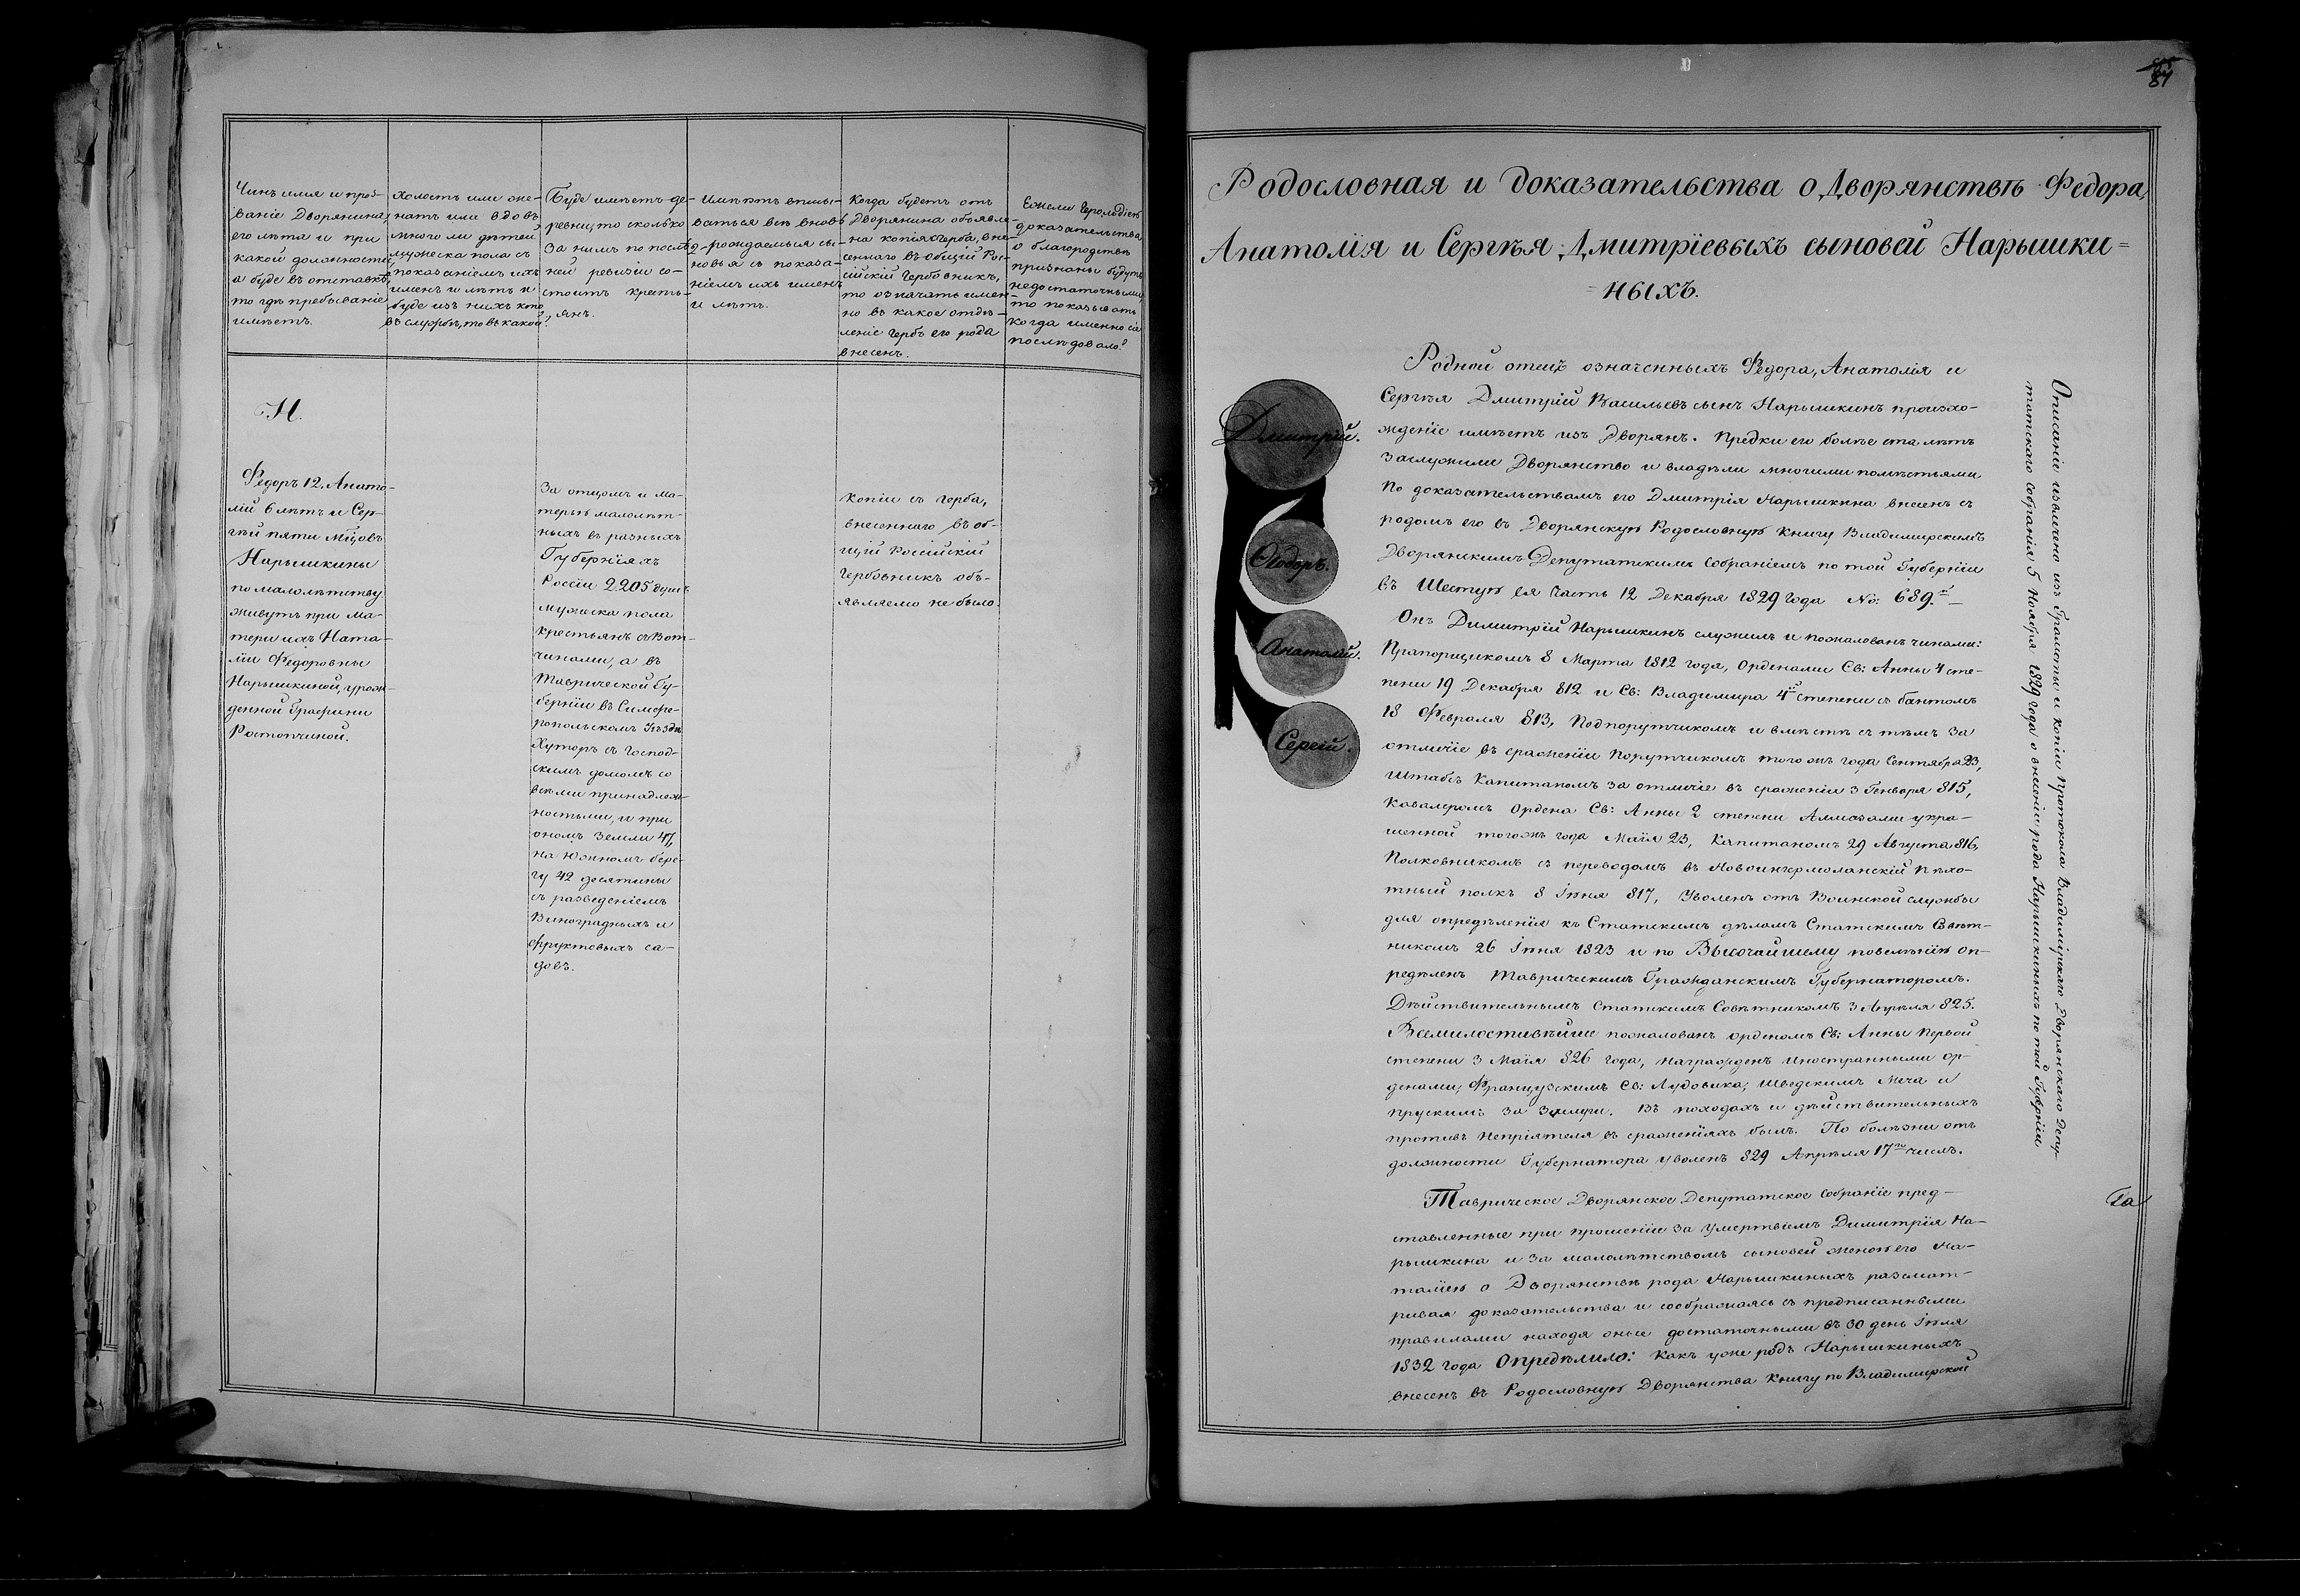 Чинъ имя и проз-
ваніе Дворянина,
его лѣта и при
какой должности,
а буде въ отставкѣ,
то гдѣ пребываніе
имѣетъ.
Холостъ или же-
натъ или вдовъ
много ли дѣтей
мужеска пола съ
показаніемъ ихъ
именъ и лѣтъ и
буде изъ нихъ кто
въ службѣ, то въ какой?
Буде имѣетъ де-
ревни, то сколько
за нимъ по послѣд-
ней ревизіи со-
стоитъ кресть-
янъ.
Имѣютъ вписы-
ваться всѣ вновь
рождаемыя сы-
новья съ показа-
ніемъ ихъ именъ
и лѣтъ.
Когда будетъ отъ
Дворянина объявле-
на копія Герба, вне-
сеннаго въ общій Рос-
сійскій Гербовникъ,
то означать имен-
но въ какое отдѣ-
леніе Гербъ его рода
внесенъ.
Ежели Герольдіею
доказательства
о благородствѣ
признаны будутъ
недостаточными,
то показывать
когда именно сіе
послѣдовало?
Н.
Федоръ 12, Анато-
лій 6 лѣтъ и Сер-
гѣй пяти Мцовъ
Нарышкины
по малолѣтству
живутъ при ма-
тери ихъ Ната-
ліи Федоровны
Нарышкиной, урож-
денной Графини
Ростопчиной.
За отцомъ и ма-
терью малолѣт-
ныхъ въ разныхъ
Губерніяхъ
Россіи 2205 душъ
мужеска пола
крестьянъ съ Вот-
чинами, а въ
Таврической Гу-
берніи въ Симфе-
ропольскомъ Уѣздѣ
Хуторъ съ Господ-
скимъ домомъ со
всѣми принадлеж-
ностьми, и при
ономъ земли 47,
на Южномъ бере-
гу 42 десятины
съ разведеніемъ
Виноградныхъ и
фруктовыхъ са-
довъ.
Копіи съ герба,
внесеннаго въ об-
щій Россійскій
Гербовникъ объ-
являемо не было.
84
Родословная и доказательства о Дворянствѣ Федора,
Анатолія и Сергѣя Дмитріевыхъ сыновей Нарышки=
=ныхъ.
Дмитрій.
Ѳедоръ.
Анатолій.
Сергій.
Родной отецъ означенныхъ Федора, Анатолія и
Сергѣя Дмитрій Васильевъ сынъ Нарышкинъ происхо-
жденіе имѣетъ изъ Дворянъ. Предки его болѣе ста лѣтъ
заслужили Дворянство и владѣли многими помѣстьями.
По доказательствамъ его Дмитрія Нарышкина внесенъ съ
родомъ его въ Дворянскую Родословную книгу Владимирскимъ
Дворянскимъ Депутатскимъ Собраніемъ по той Губерніи
въ Шестую ея Часть 12 Декабря 1829 года No: 689.
Онъ Димитрій Нарышкинъ служилъ и пожалованъ чинами:
Прапорщикомъ 8 Марта 1812 года, Орденами Св: Анны 4 сте-
пени 19 Декабря 812 и Св: Владимира 4й степени съ бантомъ
18 Февраля 813, Подпорутчикомъ и вмѣстѣ съ тѣмъ за
отличіе въ сраженіи Порутчикомъ того жъ года Сентября 23,
Штабсъ Капитаномъ за отличіе въ сраженіи 3 Генворя 815,
Кавалеромъ Ордена Св: Анны 2 степени Алмазами укра-
шенной того жъ года Маія 23, Капитаномъ 29 Августа 816,
Полковникомъ съ переводомъ въ Новоингермоланскій Пѣхо-
тный полкъ 8 Іюня 817, Уволенъ отъ Воинской службы
для опредѣленія къ Статскимъ дѣламъ Статскимъ Совѣт-
никомъ 26 Іюня 1823 и по Высочайшему повелѣнію оп-
редѣленъ Таврическимъ Гражданскимъ Губернаторомъ.
Дѣйствительнымъ Статскимъ Совѣтникомъ 3 Апрѣля 825.
Всемилостивѣйше пожалованъ орденомъ Св: Анны Первой
степени 3 Маія 826 года, награжденъ иностранными ор-
денами, Французскимъ Св: Лудовика, Шведскимъ Меча и
Прускимъ за Заслуги. Въ походахъ и дѣйствительныхъ
противъ Непріятеля въ сраженіяхъ былъ. По болѣзни отъ
должности Губернатора уволенъ 829 Апрѣля 17го числъ.
Таврическое Дворянское Депутатское Собраніе пред-
ставленные при прошеніи за умертвіемъ Димитрія На-
рышкина и за малолѣтствомъ сыновей женою его На-
таліею о Дворянствѣ рода Нарышкиныхъ разсмат-
ривая доказательства и соображаясь съ предписанными
правилами находя оные достаточными въ 30 день Іюля
1832 года Опредѣлило: Какъ уже родъ Нарышкиныхъ
внесенъ въ Родословную Дворянства Книгу по Владимирской
Описаніе извлечено изъ Грамоты и копіи Протокола Владимірскаго Дворянскаго Депу-
татскаго Собранія 5 Ноября 1829 года о внесеніи рода Нарышкиныхъ по той Губерніи